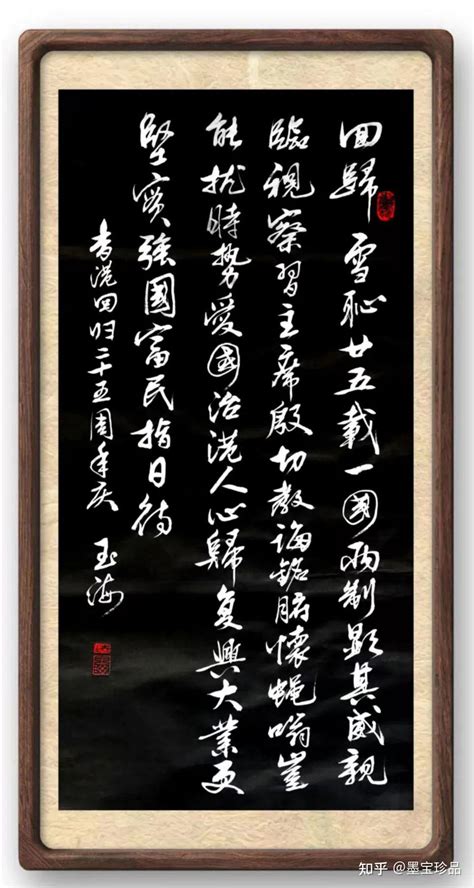 回歸 雪恥廿五載一國兩制顯其威親
臨視察習主席殷切教誨銘腑懷蝇嗡豈
能扰時势愛國治港人心歸复興大業更
堅實強國富民指日待
香港回归二十五周年庆 玉海
知乎 @墨宝珍品